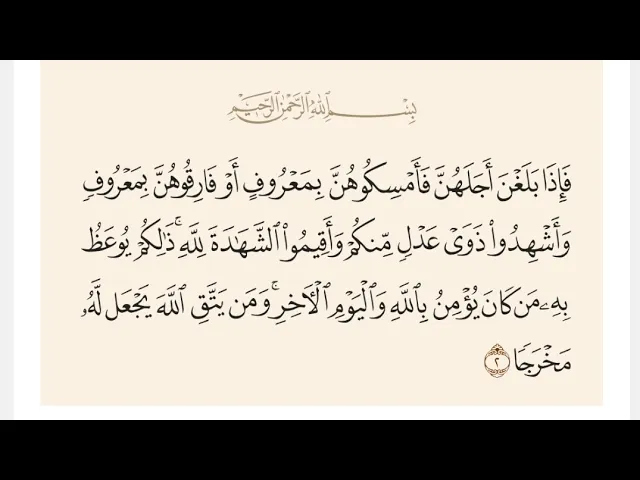 بِسْمِ ٱللَّهِ ٱلرَّحْمَٰنِ ٱلرَّحِيمِ
فَإِذَا بَلَغْنَ أَجَلَهُنَّ فَأَمْسِكُوهُنَّ بِمَعْرُوفٍ أَوْ فَارِقُوهُنَّ بِمَعْرُوفٍ
وَأَشْهِدُوا۟ ذَوَىْ عَدْلٍ مِّنكُمْ وَأَقِيمُوا۟ ٱلشَّهَٰدَةَ لِلَّهِ ۚ ذَٰلِكُمْ يُوعَظُ
بِهِۦ مَن كَانَ يُؤْمِنُ بِٱللَّهِ وَٱلْيَوْمِ ٱلْءَاخِرِ ۚ وَمَن يَتَّقِ ٱللَّهَ يَجْعَل لَّهُۥ
مَخْرَجًا ٢